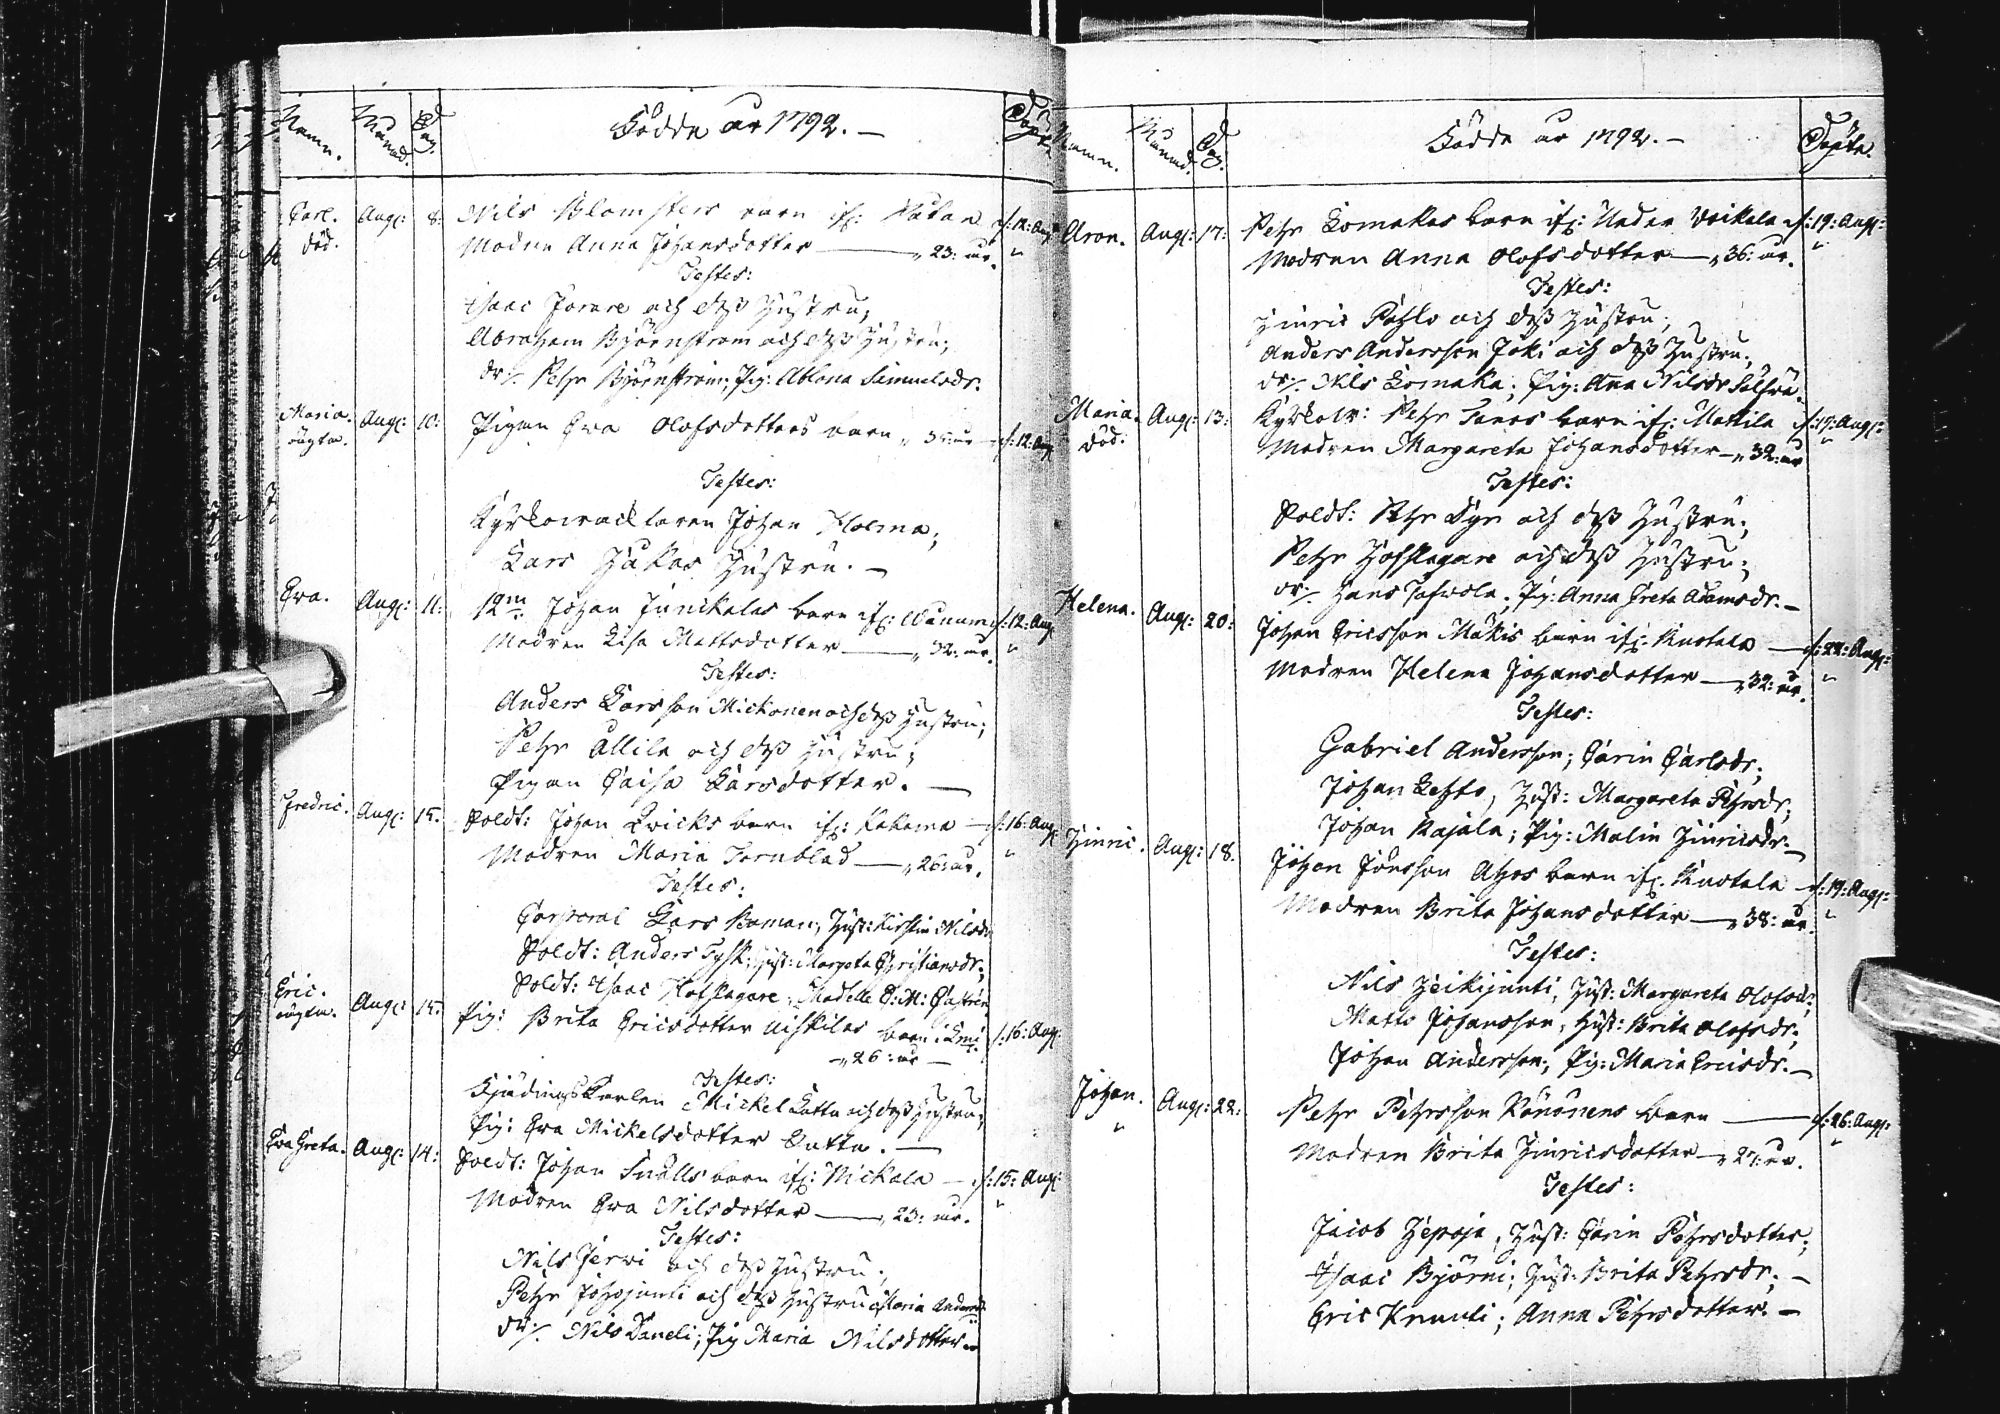 Namn. Månad. Dag. Födde år 1792. — Döpte.
Carl. Aug: 8: Nils Blomsters barn if: d: 12: Aug:
död. Modren Anna Johansdotter — „ 23: år. „
Testes:
Isaac Forare och deß Hustru;
Abraham Björnström och deß Hustru;
dr: Pehr Björnström; Pig: Ablona Samuelsdr.
Maria. Aug: 10: Pigan Eva Olofsdotters barn „ år d: 12: Aug:
oägta.
Testes:
Kyrkowacktaren Johan Holma;
Lars Jukas Hustru. —
Eva. Aug: 11: Johan Junikalas barn if: d: 12: Aug:
Modren Lisa Mattsdotter — „ 32: år. „
Testes:
Anders Larsson Mickonen och deß Hustru;
Pehr Allila och deß Hustru;
Pigan Caisa Larsdotter. —
Fredric. Aug: 15: Soldt: Johan Qvicks barn if: Kakama — d: 16: Aug:
Modren Maria Törnblad — „ 26: år. „
Testes:
Corporal Lars Boman, Hust: Kirstin Nilsdr
Soldt: Anders Tysk; Hust: Margeta Christiansdr;
Soldt: Isaac Hofslagare, Madelle C: M: Castrén
Eric. Aug: 15: Pig: Brita Ericsdotter barn i Kemi d: 16: Aug:
oägta. — „ 26: år —
Testes:
Mickel Latta och deß Hustru;
Pig: Eva Mickelsdotter Latta. —
Eva Greta. Aug: 14: Soldt: Johan Snälls barn if: Nickala — d: 15: Aug:
Modren Eva Nilsdotter — „ 23: år. „
Testes:
Nils Jerwi och deß Hustru;
Pehr Johojunti och deß Hustru Maria Andersdr
dr: Nils Daneli; Pig Maria Nilsdotter.
Namn. Månad. Dag. Födde år 1792. — Döpte.
Aron. Aug: 17: Pehr Lomakas barn if: Neder Woikala d: 19: Aug:
Modren Anna Olofsdotter — „ 36: år. „
Testes:
Hinric Pahlo och deß Hustru;
Anders Andersson Joki och deß Hustru;
dr: Nils Lomaka; Pig: Ana Nilsdr
Maria. Aug: 13: Kyrkow: Pehr Tanos barn if: Mattila d: 19: Aug:
död. Modren Margareta Johansdotter — „ 32: år „
Testes:
Soldt: Pehr och deß Hustru;
Pehr Hofslagare och deß Hustru;
dr: Hans Tafwola; Pig: Anna Greta Adamsdr. —
Helena. Aug: 20: Johan Ericsson Mäkis barn if: Kustala — d: 22: Aug:
Modren Helena Johansdotter — „ 32: år. „
Testes:
Gabriel Andersson; Carin Carlsdr;
Johan Lehto, Hust: Margareta Pehrsdr;
Johan Rajala; Pig: Malin Hinricsdr. —
Hinric. Aug: 18. Johan Jönsson Ahos barn if: Kustala — d: 19: Aug:
Modren Brita Johansdotter — „ 38: år. „
Testes:
Nils Heikijunti, Hust: Margareta Olofsdr;
Matts Johansson, Hust: Brita Olofsdr;
Johan Andersson; Pig: Maria Ericsdr. —
Johan. Aug: 22: Pehr Pehrsson Könönens barn — d: 26: Aug:
„ Modren Brita Hinricsdotter — „ 27: år. „
Testes:
Jacob Hepoja, Hust: Carin Pehrsdotter;
Isaac Björni; Hust: Brita Pehrsdr; —
Eric Knuuti; Anna Pehrsdotter. —